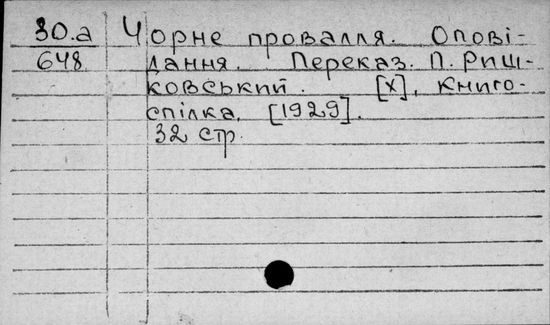 30.а Чорне провалля. Опові-
648 дання. Переказ. П. Риш-
ковський. [Х], Книго-
спілка, [1929].
32 стр.